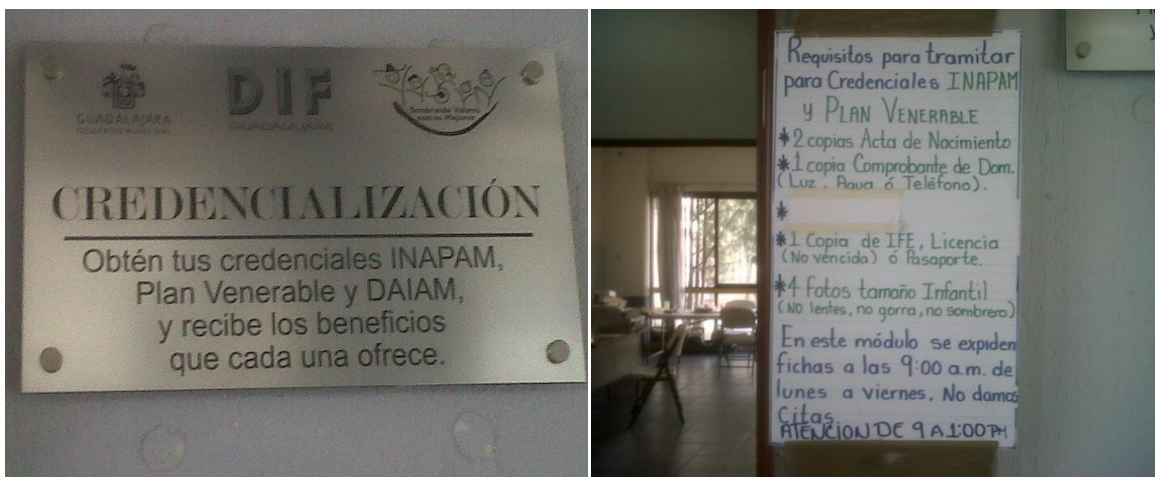 GUADALAJARA
GOBIERNO MUNICIPAL
DIF
GUADALAJARA
Sembrando Valores
somos Mejores
CREDENCIALIZACIÓN
Obtén tus credenciales INAPAM,
Plan Venerable y DAIAM,
y recibe los beneficios
que cada una ofrece.
Requisitos para tramitar
para Credenciales INAPAM
y PLAN VENERABLE
*2 copias Acta de Nacimiento
*1 copia Comprobante de Dom.
(Luz, Agua ó Teléfono).
*
*1 Copia de IFE, Licencia
(No vencida) ó Pasaporte.
*4 Fotos tamaño Infantil
(NO lentes, no gorra, no sombrero)
En este módulo se expiden
fichas a las 9:00 a.m. de
lunes a viernes. No damos
citas
ATENCION DE 9 A 1:00 PM